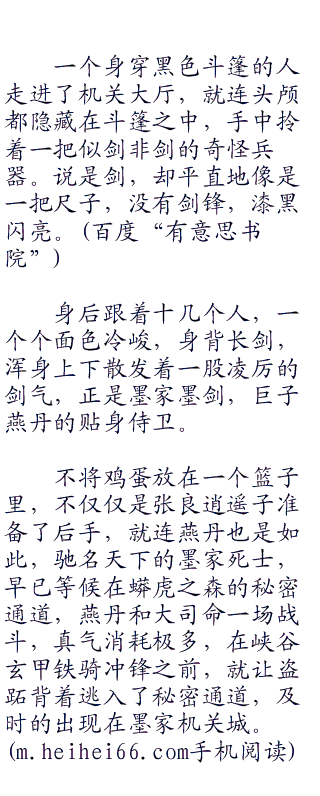 一个身穿黑色斗篷的人
走进了机关大厅，就连头颅
都隐藏在斗篷之中，手中拎
着一把似剑非剑的奇怪兵
器。说是剑，却平直地像是
一把尺子，没有剑锋，漆黑
闪亮。(百度“有意思书
院”)
身后跟着十几个人，一
个个面色冷峻，身背长剑，
浑身上下散发着一股凌厉的
剑气，正是墨家墨剑，巨子
燕丹的贴身侍卫。
不将鸡蛋放在一个篮子
里，不仅仅是张良逍遥子准
备了后手，就连燕丹也是如
此，驰名天下的墨家死士，
早已等候在蟒虎之森的秘密
通道，燕丹和大司命一场战
斗，真气消耗极多，在峡谷
玄甲铁骑冲锋之前，就让盗
跖背着逃入了秘密通道，及
时的出现在墨家机关城。
(m.heihei66.com手机阅读)